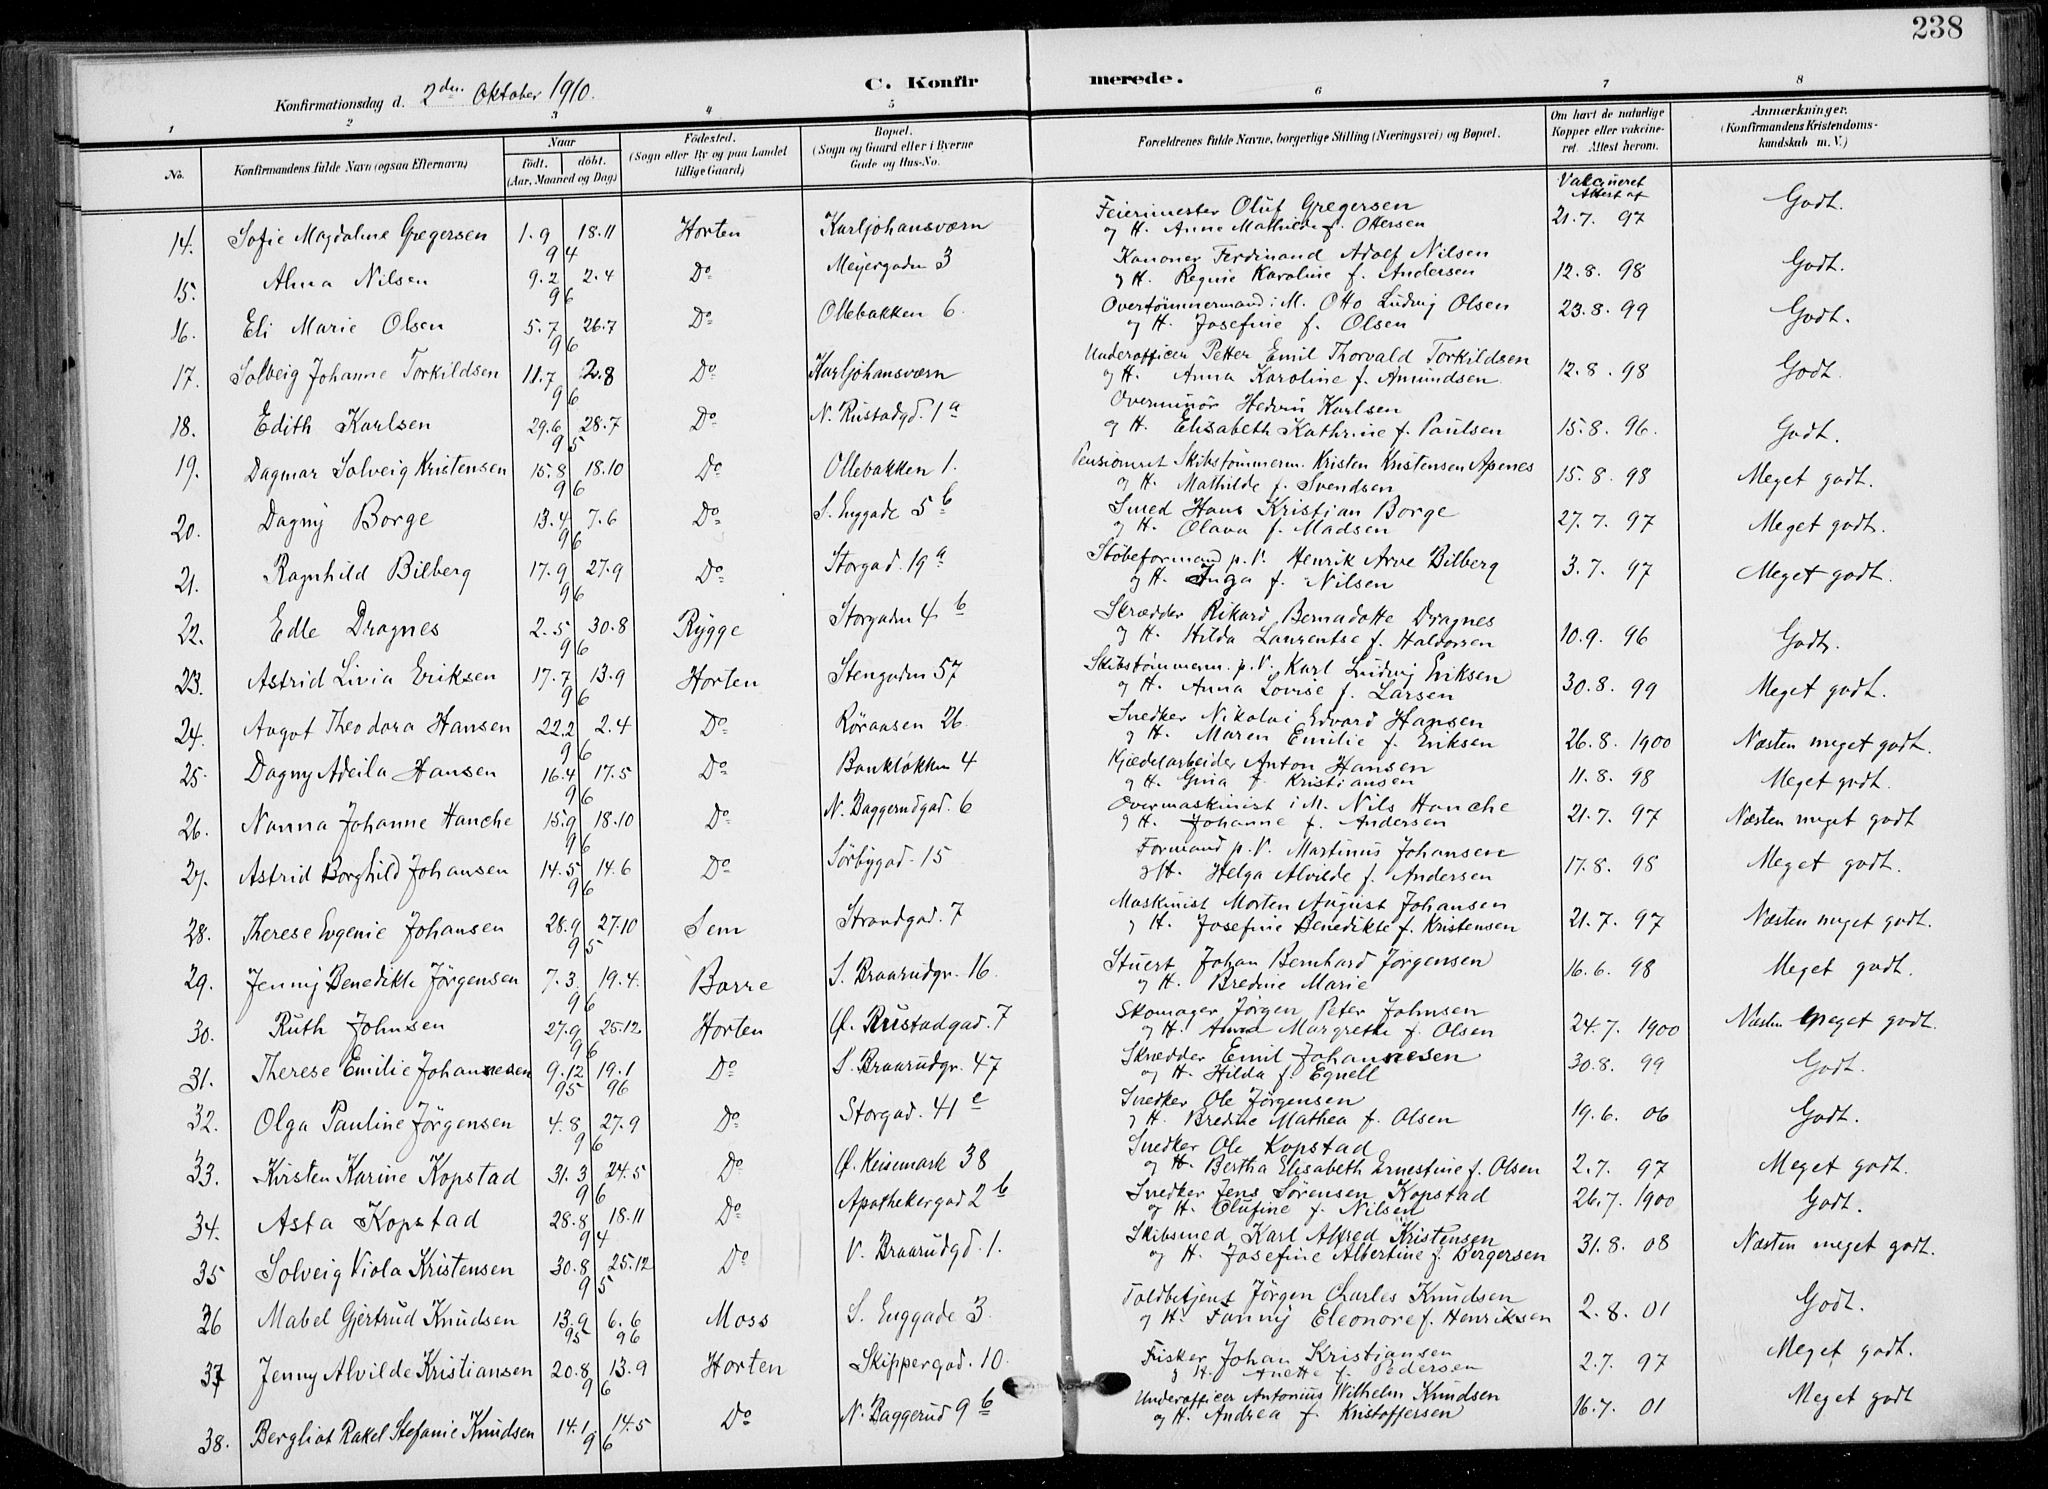 238
Konfirmationsdag d. 2den Oktober 1910.
C. Konfirmerede.
1 2 3 4 5 6 7 8
No. Konfirmandens fulde Navn (ogsaa Efternavn) Naar født. døbt. (Aar, Maaned og Dag) Fødested. (Sogn eller By og paa Landet tillige Gaard) Bopæl. (Sogn og Gaard eller i Byerne Gade og Hus-No. Forældrenes fulde Navne, borgerlige Stilling (Næringsvei) og Bopæl. Om havt de naturlige Kopper eller vakcineret. Attest herom. Anmærkninger. (Konfirmandens Kristendomskundskab m. V.)
Vakcineret Attest af
14. Sofie Magdalene Gregersen 1.9 18.11 94 Horten Karljohansværn Feiermester Oluf Gregersen og H. Anne Mathilde f. Ottersen 21.7. 97 Godt.
15. Alma Nilsen 9.2 2.4 96 Do Meyergaden 3 Kanoner Ferdinand Adolf Nilsen og H. Regine Karoline f. Andersen 12.8. 98 Godt.
16. Eli Marie Olsen 5.7 26.7 96 Do Ollebakken 6. Overtømmermand i M. Otto Ludvig Olsen og H. Josefine f. Olsen 23.8. 99 Godt.
17. Solveig Johanne Torkildsen 11.7 2.8 96 Do Karljohansværn Underofficer Petter Emil Thorvald Torkildsen og H. Anna Karoline f. Amundsen. 12.8. 98 Godt.
18. Edith Karlsen 29.6 28.7 95 Do N. Rustadgd. 1a Overminør Hedvin Karlsen og H. Elisabeth Kathrine f. Paulsen 15.8. 96. Godt.
19. Dagmar Solveig Kristensen 15.8 18.10 96 Do Ollebakken 1. Pensioneret Skibstømmerm. Kristen Kristensen Apenes og H. Mathilde f. Svendsen 15.8. 98 Meget godt.
20. Dagny Borge 13.4 7.6 96 Do S. Enggade 5b Smed Hans Kristian Borge og H. Olava f. Madsen 27.7. 97 Meget godt.
21. Ragnhild Bilberg 17.9 27.9 96 Do Storgad. 19a Støbeformand p. V. Henrik Arve Bilberg og H. Inga f. Nilsen 3.7. 97 Meget godt.
22. Edle Dragnes 2.5 30.8 96 Rygge Storgaden 4b Skrædder Rikard Bernadotte Dragnes og H. Hilda Laurentse f. Haldorsen 10.9. 96 Godt.
23. Astrid Livia Eriksen 17.7 13.9 96 Horten Stengaden 57 Skibstømmerm. p. V. Karl Ludvig Eriksen og H. Anna Lovise f. Larsen 30.8. 99 Meget godt.
24. Aagot Theodora Hansen 22.2 2.4 96 Do Røraasen 26 Snedker Nikolai Edvard Hansen og H. Maren Emilie f. Eriksen 26.8. 1900 Næsten meget godt.
25. Dagny Adeila Hansen 16.4 17.5 96 Do Bankløkken 4 Kjædelarbeider Anton Hansen og H. Gina f. Kristiansen 11.8. 98 Meget godt.
26. Nanna Johanne Hanche 15.9 18.10 96 Do N. Baggerudgad. 6 Overmaskinist i M. Nils Hanche og H. Johanne f. Andersen 21.7. 97 Næsten meget godt
27. Astrid Borghild Johansen 14.5 14.6 96 Do Sørbygad. 15 Formand p. V. Martinus Johansen og H. Helga Alvilde f. Andersen 17.8. 98 Meget godt.
28. Therese Evgenie Johansen 28.9 27.10 95 Sem Strandgad. 7 Maskinist Morten August Johansen og H. Josefine Benedikte f. Kristensen 21.7. 97 Næsten meget godt.
29. Jenny Benedikte Jørgensen 7.3 19.4. 96 Borre S. Braarudgr. 16. Stuert Johan Bernhard Jørgensen og H. Bredine Marie 16.6. 98 Meget godt.
30. Ruth Johnsen 27.9 25.12 96 Horten Ø. Rustadgad. 7 Skomager Jørgen Peter Johnsen og H. Anna Margrethe f. Olsen 24.7. 1900 Næsten meget godt.
31. Therese Emilie Johannesen 9.12 95 19.1 96 Do S. Braarudgr. 47 Skrædder Emil Johannesen og H. Hilda f. Egnell 30.8. 99 Godt.
32. Olga Pauline Jørgensen 4.8 27.9 96 Do Storgad. 41c Snedker Ole Jørgensen og H. Bredine Mathea f. Olsen 19.6. 06 Godt.
33. Kirsten Karine Kopstad 31.3 24.5 96 Do Ø. Keisemark 38 Snedker Ole Kopstad og H. Bertha Elisabeth Ernestine f. Olsen 2.7. 97 Meget godt.
34. Asta Kopstad 28.8 18.11 94 Do Apothekergad 2b Snedker Jens Sørensen Kopstad og H. Olufine f. Nilsen 26.7. 1900 Godt.
35 Solveig Viola Kristensen 30.8 25.12 95 Do V. Braarudgd. 1. Skibsmed Karl Alfred Kristensen og H. Josefine Albertine f. Bergersen 31.8. 08 Næsten meget godt.
36 Mabel Gjertrud Knudsen 13.9 95 6.6 96 Moss S. Enggade 3. Toldbetjent Jørgen Charles Knudsen og H. Fanny Eleonore f. Henriksen 2.8. 01 Godt.
37 Jenny Alvilde Kristiansen 20.8 13.9 96 Horten Skippergad. 10. Fisker Johan Kristiansen og H. Anette f. Pedersen 2.7. 97 Meget godt.
38. Bergliot Rakel Stefanie Knudsen 14.1 14.5 96 Do N. Baggerud 9b Underofficer Antonius Wilhelm Knudsen og H. Andrea f. Kristoffersen 16.7. 01 Meget godt